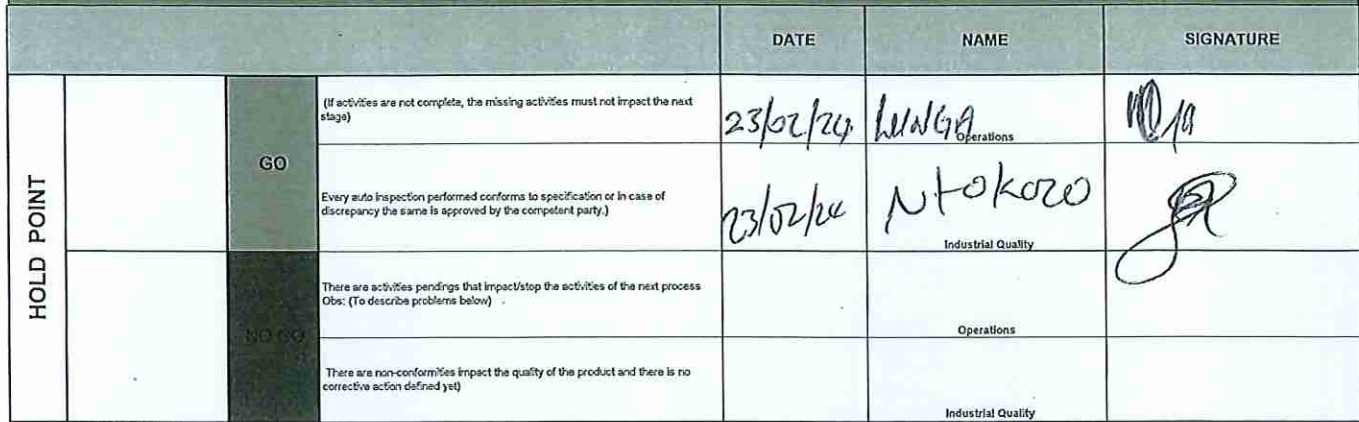 DATE NAME SIGNATURE
HOLD POINT
GO
(If activities are not complete, the missing activities must not impact the next
stage)
23/02/24 LUNGA
Operations
Every auto inspection performed conforms to specification or in case of
discrepancy the same is approved by the competent party.)
23/02/24 Ntokozo
Industrial Quality
NO GO
There are activities pendings that impact/stop the activities of the next process
Obs: (To describe problems below)
Operations
There are non-conformities impact the quality of the product and there is no
corrective action defined yet)
Industrial Quality